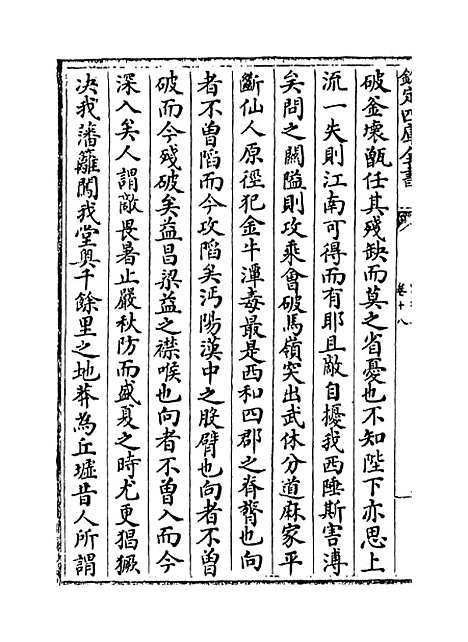 欽定四庫全書
卷十八
破釜壞甑任其殘缺而莫之省憂也不知陛下亦思上
流一失則江南可得而有耶且敵自擾我西陲斯害溥
矣問之關隘則攻乘會破馬嶺突出武休分道麻家平
斷仙人原徑犯金牛渾毒最是西和四郡之脊膂也向
者不曾蹈而今攻蹈矣沔陽漢中之股臂也向者不曾
破而今殘破矣益昌梁益之襟喉也向者不曾入而今
深入矣人謂敵畏暑止嚴秋防而盛夏之時尤更猖獗
决我藩籬闖我堂奥千餘里之地莽為丘墟昔人所謂